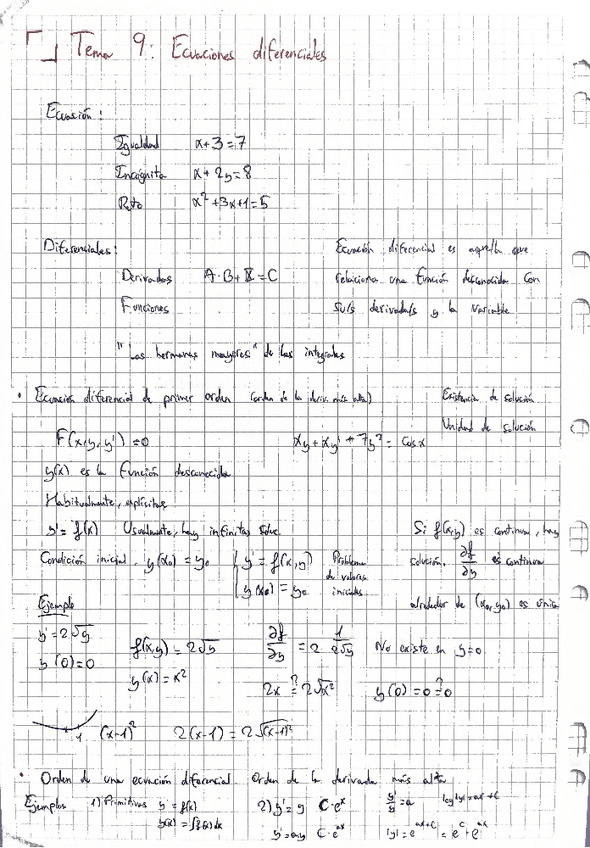 Tema 9: Ecuaciones diferenciales
Ecuación:
Igualdad x+3=7
Incógnita x+2y=8
Reto x²+3x+1=5
Diferenciales:
Derivadas A·B+X=C
Funciones
Ecuación diferencial es aquella que
relaciona una función desconocida con
su/s derivada/s y la variable
"Las hermanas mayores" de las integrales
• Ecuación diferencial de primer orden (orden de la deriv. más alta)
Existencia de solución
Unidad de solución
F(x,y,y')=0
xy+xy'+7y²=cosx
y(x) es la función desconocida
Habitualmente, explícitas
y'=f(x) Usualmente, hay infinitas soluc.
Condición inicial. y(x₀)=y₀
{ y=f(x,y)
y(x₀)=y₀
Problema
de valores
iniciales
Si f(x,y) es continua, hay
solución. ∂f/∂y es continua
alrededor de (x₀,y₀) es única
Ejemplo
y'=2√y
y(0)=0
f(x,y)=2√y
∂f/∂y = 2 1/2√y No existe en y=0
y(x)=x²
2x ?= 2√x² y(0)=0 ?= 0
1 (x-1)² 2(x-1)=2√(x-1)²
• Orden de una ecuación diferencial Orden de la derivada más alta
Ejemplos 1) Primitivas y'=f(x)
y(x)=∫f(x)dx
2) y'=y C·eˣ
y'=ay C·eᵃˣ
y'/y=a log|y|=ax+C
|y|=eᵃˣ⁺ᶜ=eᶜ·eᵃˣ